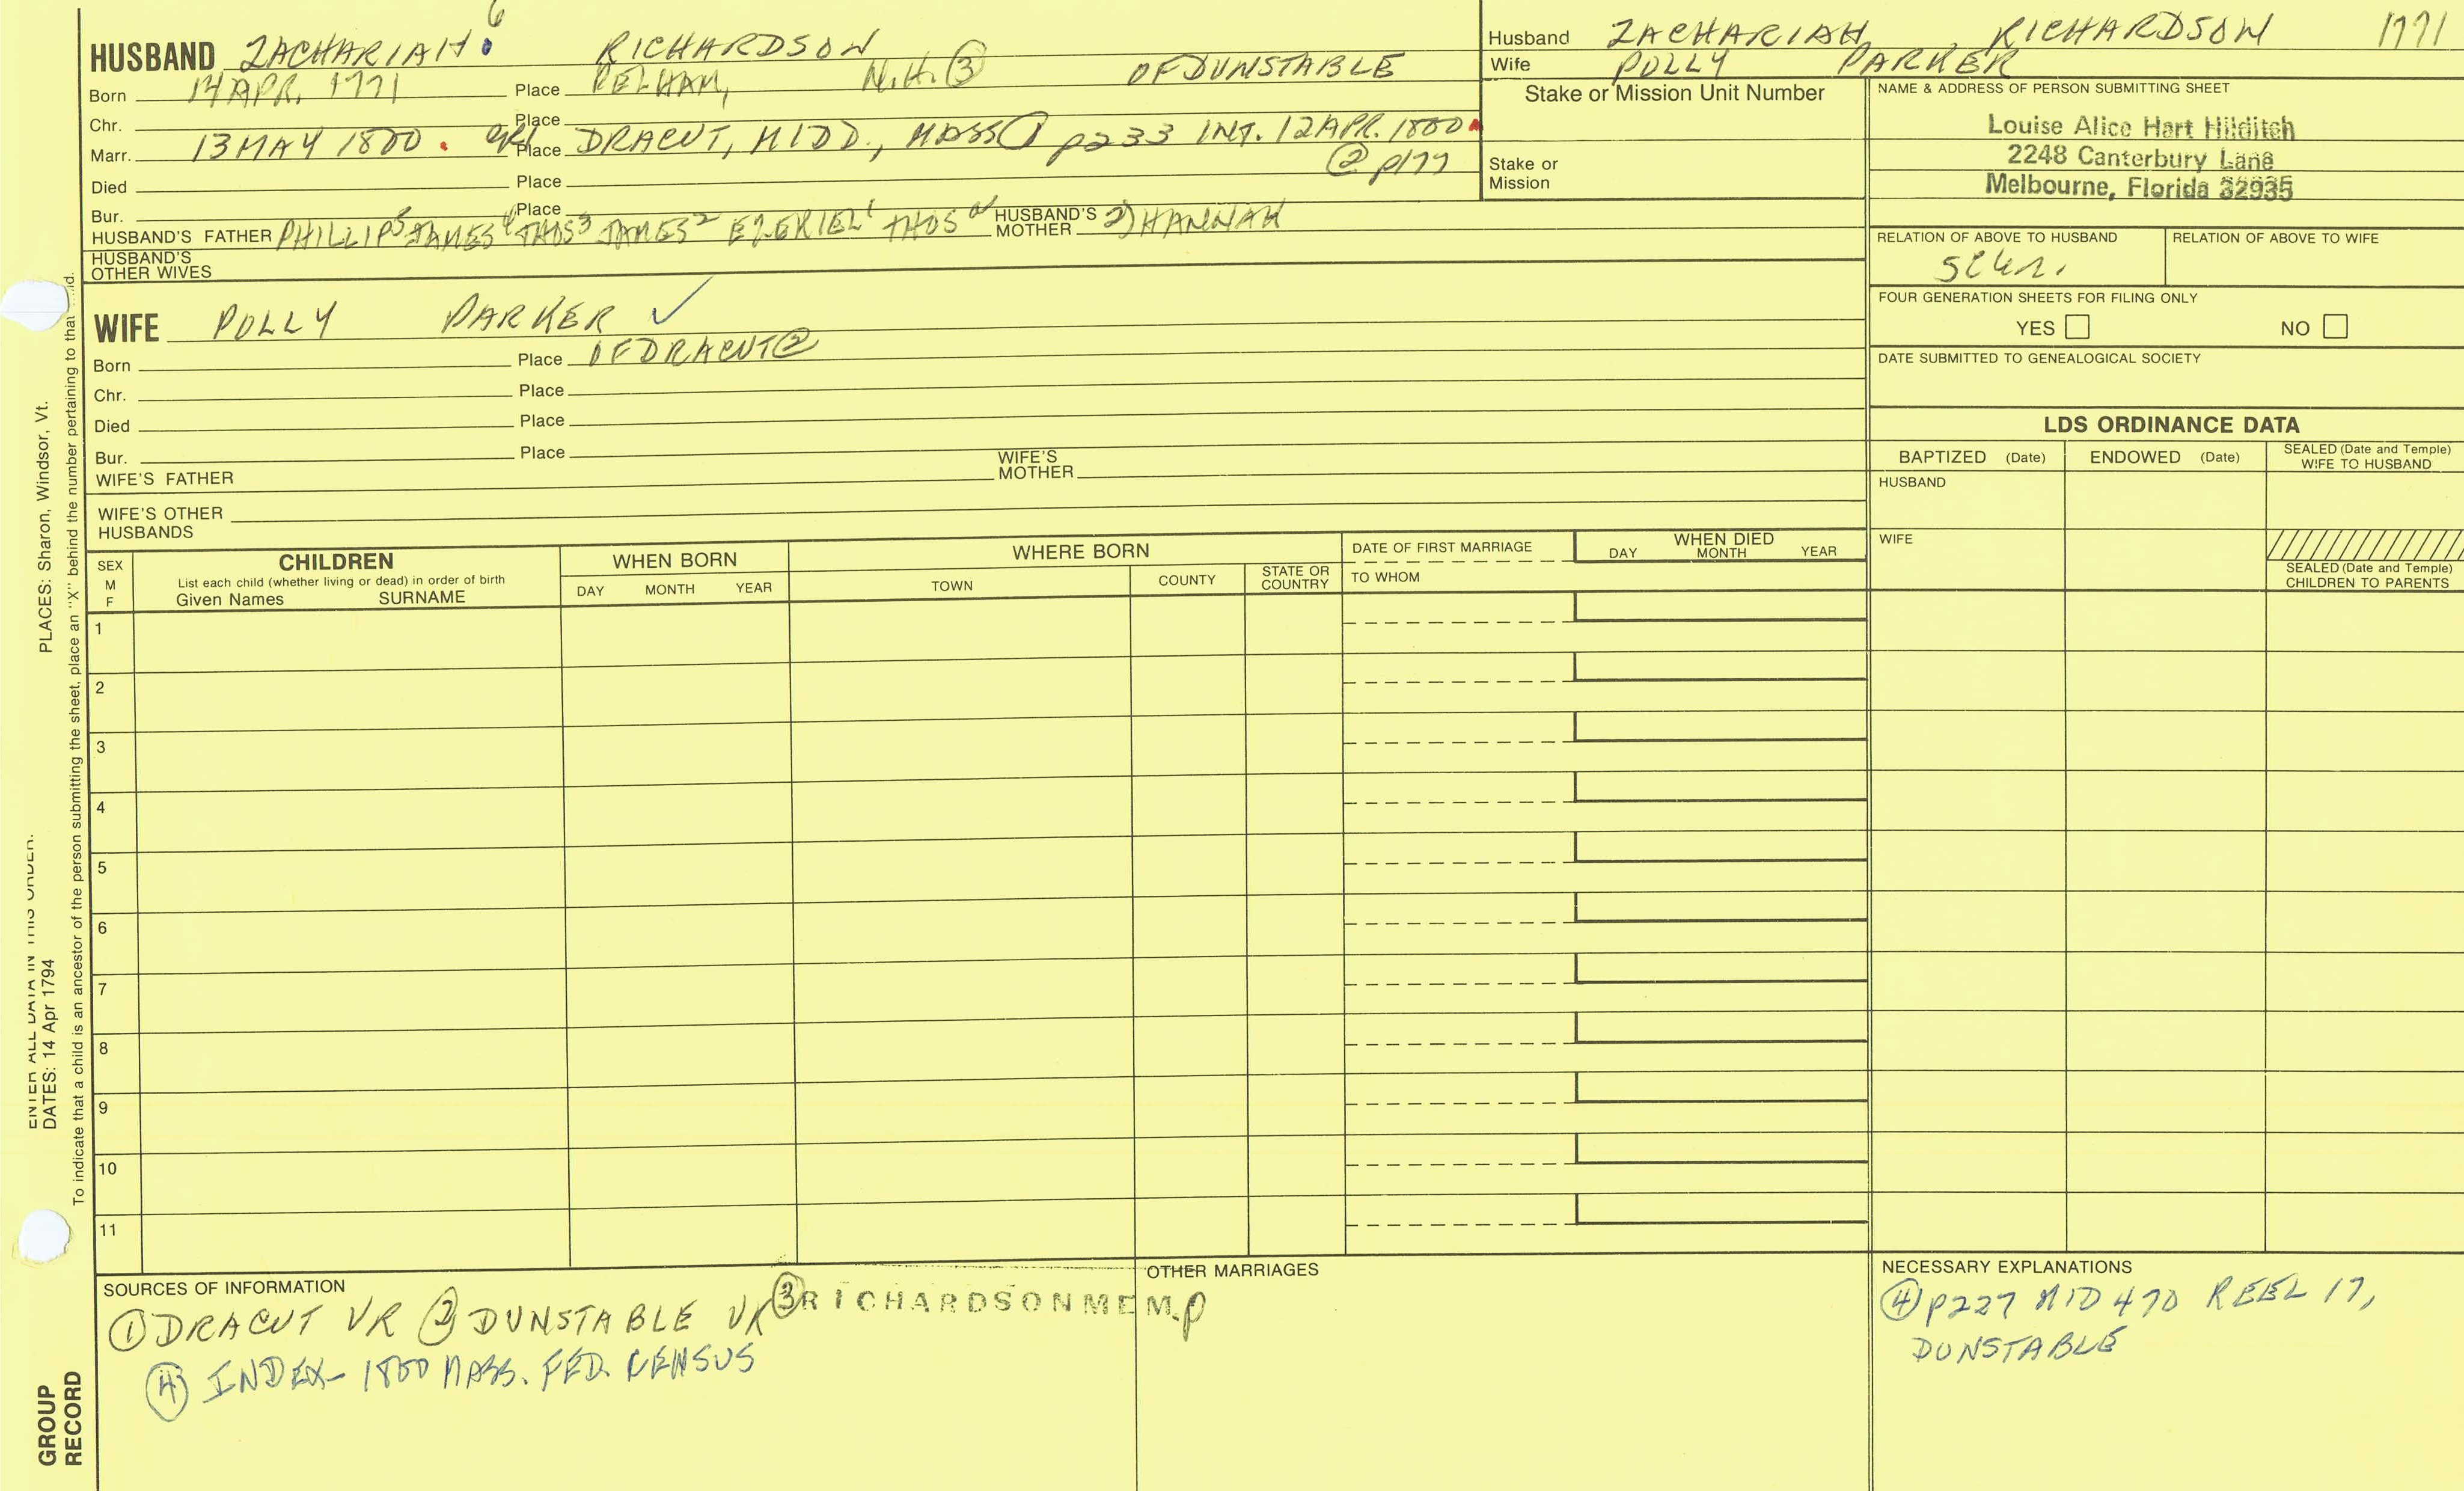 6
HUSBAND ZACHARIAH RICHARDSON
Born 14 APR. 1771 Place PELHAM, N.H. ③ OF DUNSTABLE
Chr. Place
Marr. 13 MAY 1800. Place DRACUT, MIDD., MASS ① p233 INT. 12 APR. 1800
② p177
Died Place
Bur. Place
HUSBAND'S FATHER PHILLIP⁵ JAMES⁴ THOS³ JAMES² EZEKIEL¹ THOS HUSBAND'S MOTHER 2) HANNAH
HUSBAND'S OTHER WIVES
WIFE POLLY PARKER ✓
Born Place OF DRACUT ②
Chr. Place
Died Place
Bur. Place
WIFE'S FATHER WIFE'S MOTHER
WIFE'S OTHER HUSBANDS
Husband ZACHARIAH RICHARDSON 1771
Wife POLLY PARKER
Stake or Mission Unit Number
Stake or Mission
NAME & ADDRESS OF PERSON SUBMITTING SHEET
Louise Alice Hart Hilditch
2248 Canterbury Lane
Melbourne, Florida 32935
RELATION OF ABOVE TO HUSBAND RELATION OF ABOVE TO WIFE
FOUR GENERATION SHEETS FOR FILING ONLY
YES NO
DATE SUBMITTED TO GENEALOGICAL SOCIETY
LDS ORDINANCE DATA
BAPTIZED (Date) ENDOWED (Date) SEALED (Date and Temple) WIFE TO HUSBAND
HUSBAND
WIFE
SEALED (Date and Temple) CHILDREN TO PARENTS
SEX M F
CHILDREN
List each child (whether living or dead) in order of birth
Given Names SURNAME
WHEN BORN
DAY MONTH YEAR
WHERE BORN
TOWN COUNTY STATE OR COUNTRY
DATE OF FIRST MARRIAGE
TO WHOM
WHEN DIED
DAY MONTH YEAR
1
2
3
4
5
6
7
8
9
10
11
SOURCES OF INFORMATION
① DRACUT VR ② DUNSTABLE VR ③ RICHARDSON MEM. p
④ INDEX- 1800 MASS. FED. CENSUS
OTHER MARRIAGES
NECESSARY EXPLANATIONS
④ p227 MID 470 REEL 17,
DUNSTABLE
ENTER ALL DATA IN THIS ORDER.
DATES: 14 Apr 1794 PLACES: Sharon, Windsor, Vt.
To indicate that a child is an ancestor of the person submitting the sheet, place an "X" behind the number pertaining to that
GROUP
RECORD